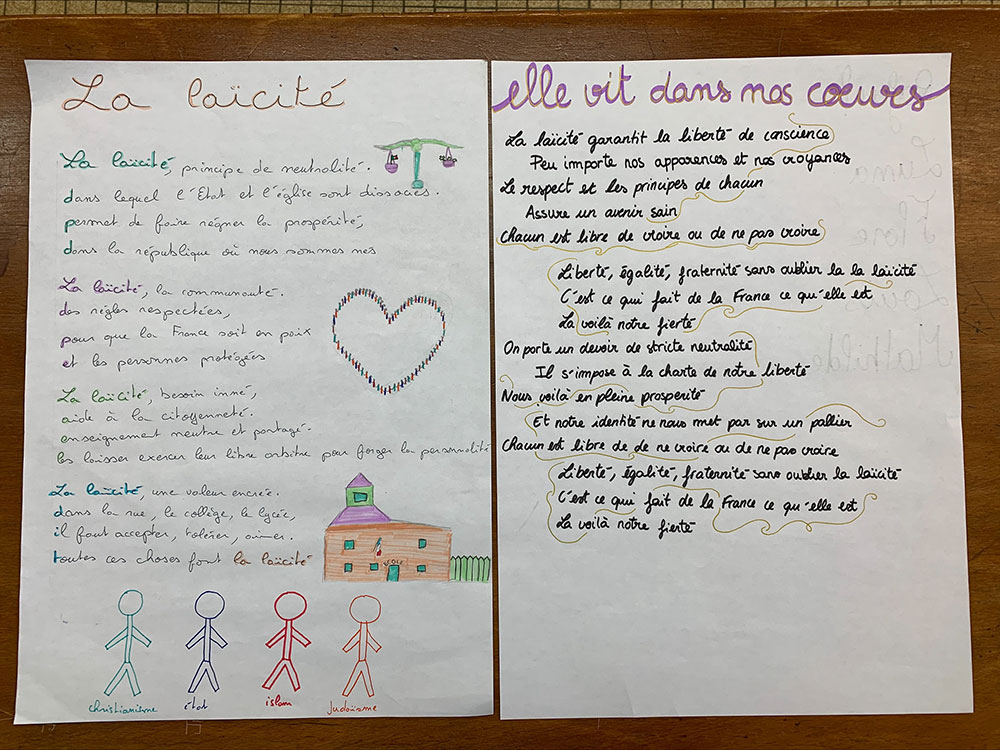 La laïcité
La laïcité, principe de neutralité.
dans lequel l'État et l'église sont dissociés.
permet de faire régner la prospérité,
dans la république où nous sommes nés
La laïcité, la communauté.
des règles respectées,
pour que la France soit en paix
et les personnes protégées
La laïcité, besoin inné,
aide à la citoyenneté.
enseignement neutre et partagé.
les laisser exercer leur libre arbitre pour forger la personnalité
La laïcité, une valeur encrée.
dans la rue, le collège, le lycée,
il faut accepter, tolérer, aimer.
toutes ces choses font la laïcité
christianisme
état
islam
judaïsme
elle vit dans nos coeurs
La laïcité garantit la liberté de conscience
Peu importe nos apparences et nos croyances
Le respect et les principes de chacun
Assure un avenir sain
Chacun est libre de croire ou de ne pas croire
Liberté, égalité, fraternité sans oublier la la laïcité
C'est ce qui fait de la France ce qu'elle est
La voilà notre fierté
On porte un devoir de stricte neutralité
Il s'impose à la charte de notre liberté
Nous voilà en pleine prosperité
Et notre identité ne nous met pas sur un pallier
Chacun est libre de de ne croire ou de ne pas croire
Liberté, égalité, fraternité sans oublier la laïcité
C'est ce qui fait de la France ce qu'elle est
La voilà notre fierté
Mathilde